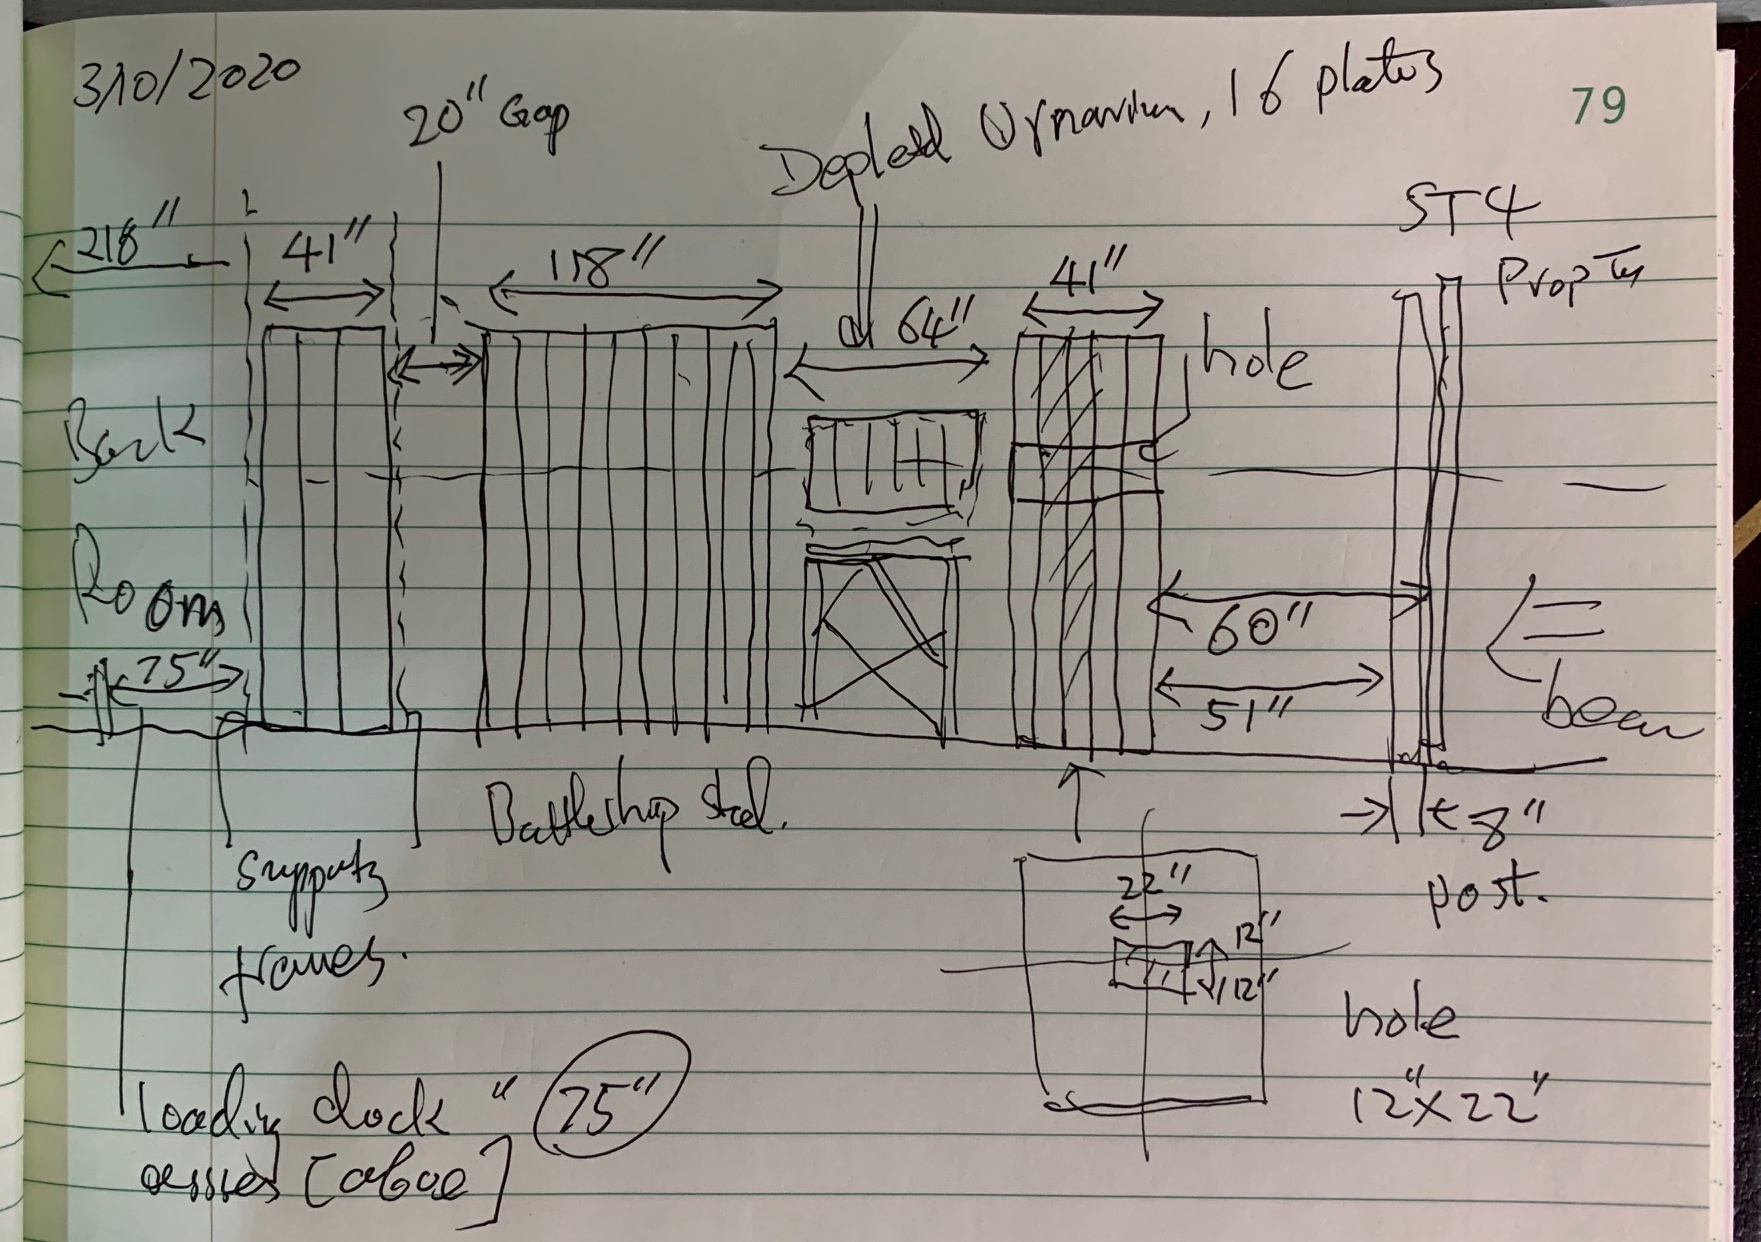 3/10/2020
20" Gap
Depleted Uranium, 16 plates
79
ST4
Prop Tu
218"
41"
118"
64"
41"
hole
Back
Room
75"
60"
51"
beam
Battleship steel.
8"
post.
supports
frames.
22"
12"
12"
hole
12" x 22"
loading dock " 75"
[above]